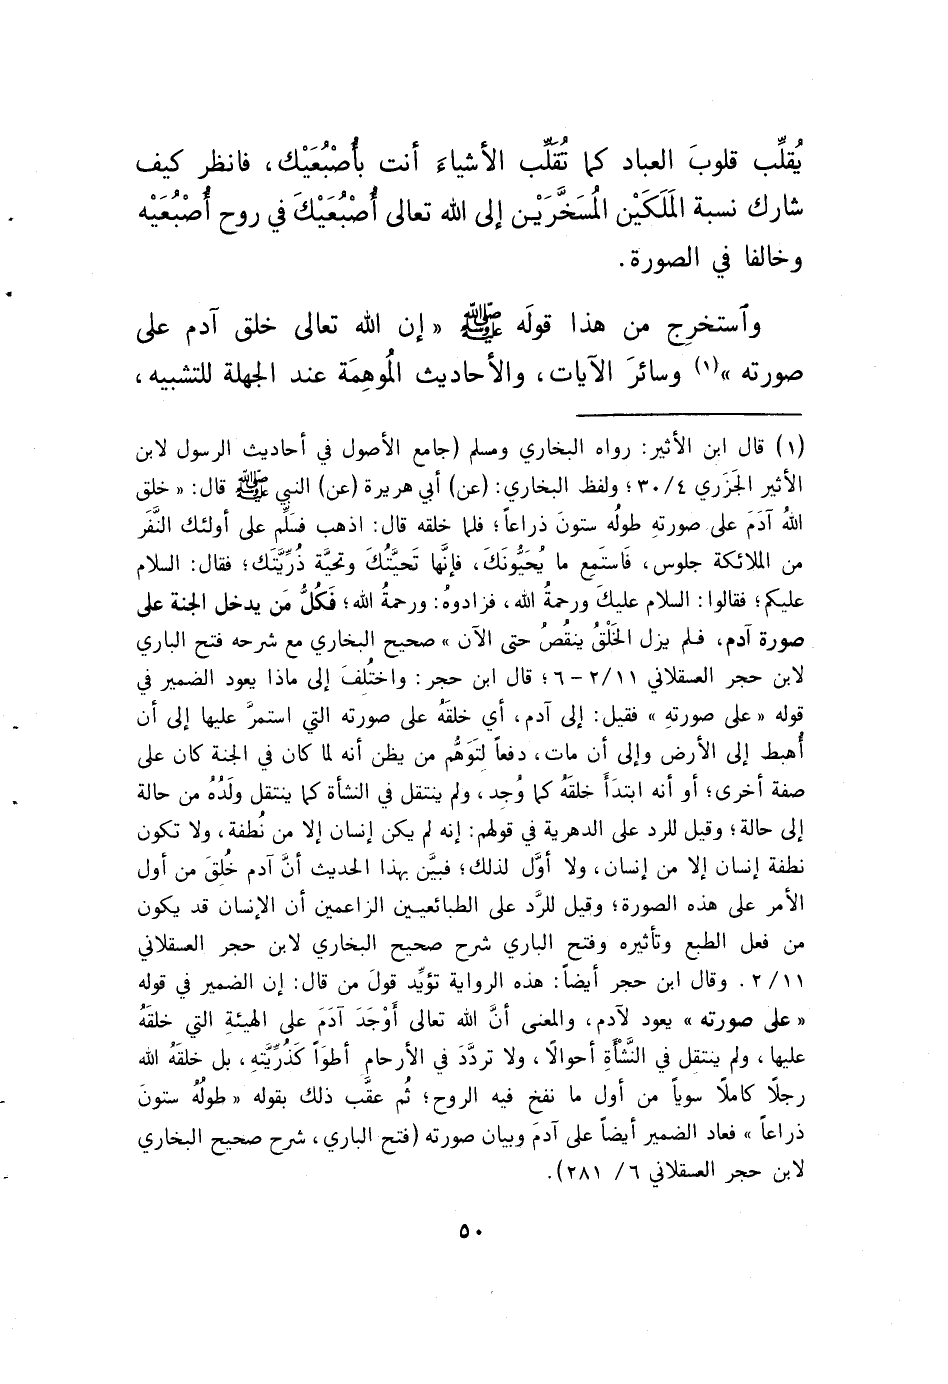 يُقلِّب قلوبَ العباد كما تُقَلِّب الأشياءَ أنت بأُصْبُعَيْك، فانظر كيف
شارك نسبة المَلَكَيْن المُسَخَّرَيْن إلى الله تعالى أُصْبُعَيْكَ في روح أُصْبُعَيْه
وخالفا في الصورة.
وٱستخرِج من هذا قولَه ﷺ « إن الله تعالى خلق آدم على
صورته »(١) وسائرَ الآيات، والأحاديث المُوهِمَة عند الجهلة للتشبيه،
(١) قال ابن الأثير: رواه البخاري ومسلم (جامع الأصول في أحاديث الرسول لابن
الأثير الجَزَري ٣٠/٤؛ ولفظ البخاري: (عن) أبي هريرة (عن) النبي ﷺ قال: « خلق
اللهُ آدَمَ على صورتهِ طولُه ستونَ ذراعاً؛ فلما خلقه قال: اذهب فسَلِّم على أولئك النَّفَر
من الملائكة جلوس، فَاستَمِع ما يُحَيُّونَكَ، فإنَّها تَحيَّتُكَ وتحيَّة ذُرِّيَّتَك؛ فقال: السلام
عليكم؛ فقالوا: السلام عليكَ ورحمةُ الله، فزادوهُ: ورحمةُ الله؛ فَكُلُّ مَن يدخل الجنة على
صورة آدم، فلم يزل الخَلْقُ ينقُصُ حتى الآن » صحيح البخاري مع شرحه فتح الباري
لابن حجر العسقلاني ٢/١١ - ٦؛ قال ابن حجر: واختُلِفَ إلى ماذا يعود الضمير في
قوله « على صورتهِ » فقيل: إلى آدم، أي خلقهُ على صورته التي استمرَّ عليها إلى أن
أُهبط إلى الأرض وإلى أن مات، دفعاً لِتَوَهُّم من يظن أنه لما كان في الجنة كان على
صفة أخرى؛ أو أنه ابتدَأَ خلقَهُ كما وُجِد، ولم ينتقل في النشأة كما ينتقل ولَدُهُ من حالة
إلى حالة؛ وقيل للرد على الدهرية في قولهم: إنه لم يكن إنسان إلا من نُطفة، ولا تكون
نطفة إنسان إلا من إنسان، ولا أوَّل لذلك؛ فبيَّن بهذا الحديث أنَّ آدم خُلِقَ من أول
الأمر على هذه الصورة؛ وقيل للرَّد على الطبائعيين الزاعمين أن الإنسان قد يكون
من فعل الطبع وتأثيره وفتح الباري شرح صحيح البخاري لابن حجر العسقلاني
٢/١١. وقال ابن حجر أيضاً: هذه الرواية تؤيِّد قولَ من قال: إن الضمير في قوله
« على صورته » يعود لآدم، والمعنى أنَّ الله تعالى أَوْجَدَ آدَمَ على الهيئةِ التي خلقهُ
عليها، ولم ينتقل في النَّشْأَةِ أحوالًا، ولا تردَّدَ في الأرحام أطوَاً كَذُرِّيَّتهِ، بل خلقَهُ الله
رجلًا كاملًا سوياً من أول ما نفخ فيه الروح؛ ثُم عقَّب ذلك بقوله « طولُهُ ستونَ
ذراعاً » فعاد الضمير أيضاً على آدمَ وبيان صورته (فتح الباري، شرح صحيح البخاري
لابن حجر العسقلاني ٦ / ٢٨١).
٥٠